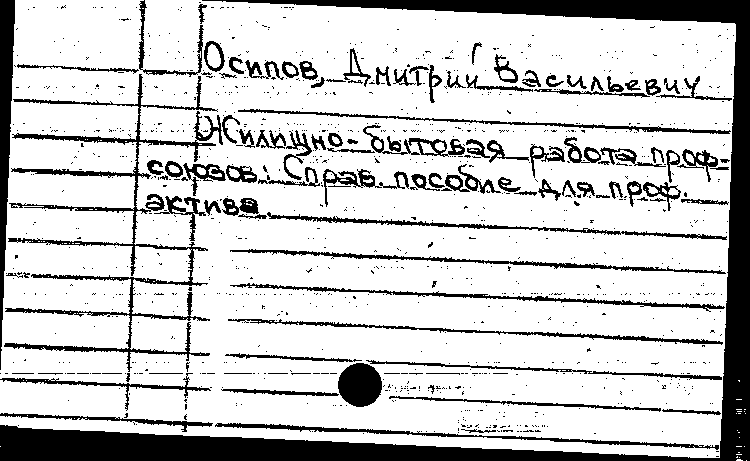 Осипов, Дмитрий Васильевич
Жилищно-бытовая работа проф-
союзов: Справ. пособие для проф.
актива.